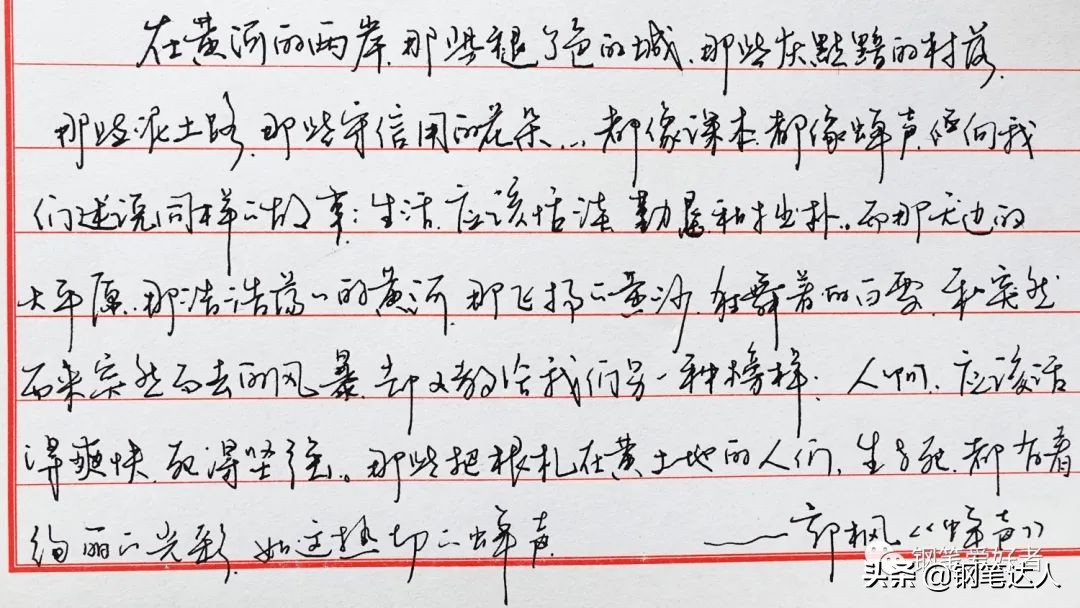 在黄河的两岸,那些褪了色的城,那些灰黯黯的村落,
那些泥土路,那些守信用的花朵…都像课本,都像蝉声,经向我
们述说同样的故事:生活,应该恬淡、勤恳和拙朴。而那无边的
大平原,那浩浩荡荡的黄河,那飞扬的黄沙,狂舞着的百雪,和突然
而来突然而去的风暴,却又教给我们另一种榜样:人啊,应该活
得爽快,死得坚强。那些把根扎在黄土地的人们,生与死,都有着
绚丽的光彩,如这热切的蝉声。 ——郭枫《蝉声》
钢笔爱好者
头条@钢笔达人